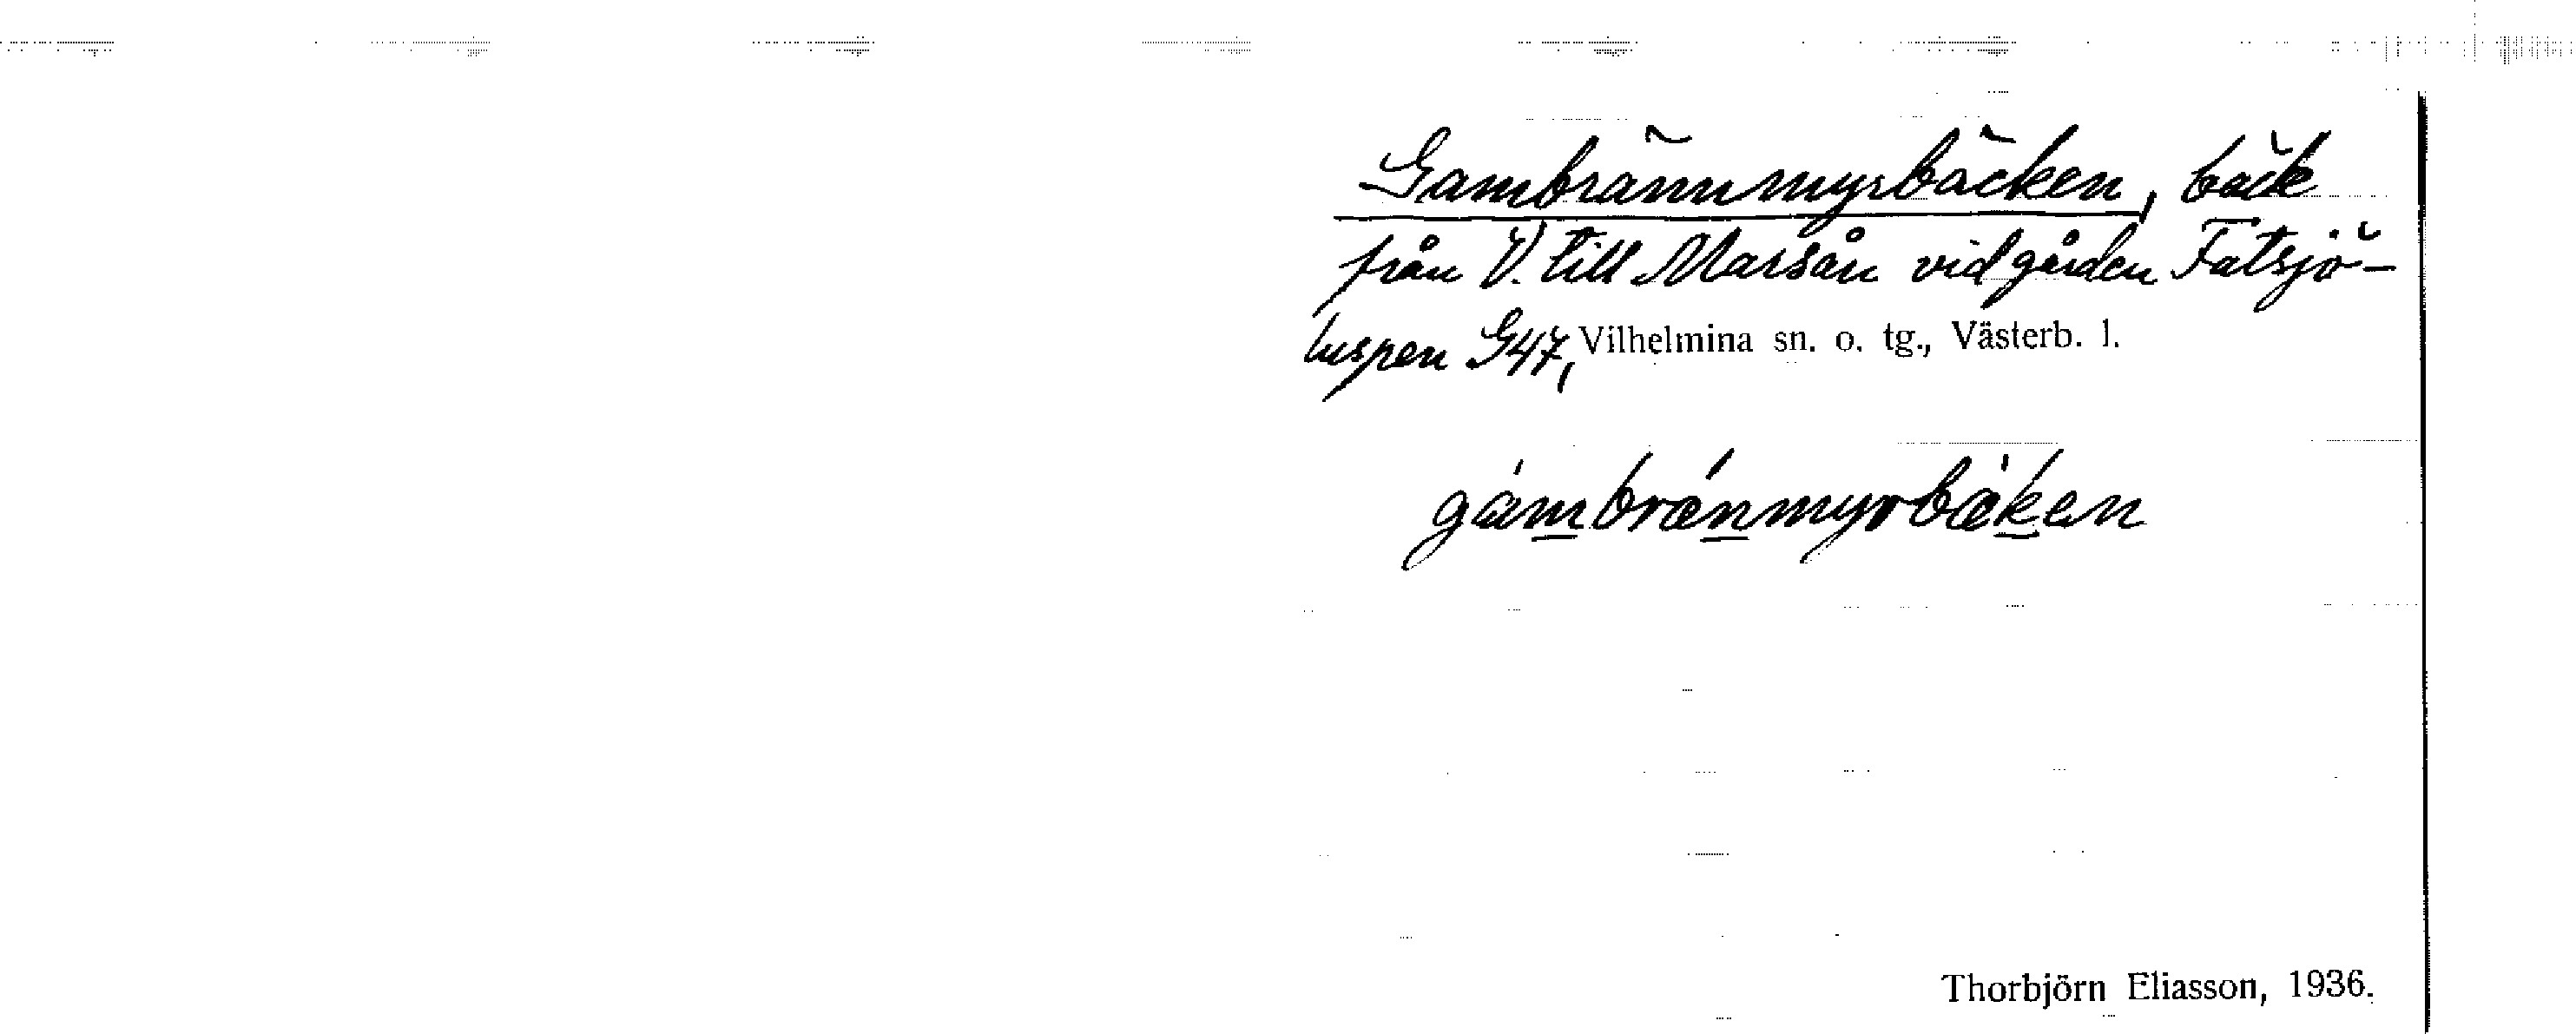 Gambrännmyrbäcken, bäck
från V. till Marsån vid gården Fatsjö-
luspen G47, Vilhelmina sn. o. tg., Västerb. l.
gàmbrǽnmyrbæ̀ken
Thorbjörn Eliasson, 1936.